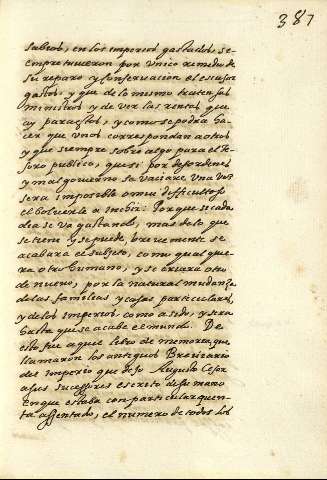 387
sabios, en los imperios gastados, si-
empre tuuieron por vnico remedio de
su reparo y conseruacion el escusar
gastos, y que de lo mismo traten sus
ministros y de ver las rentas que
ay para ellos, y como se podra ha-
cer que vnos correspondan a otros
y que siempre sobre algo para el te-
soro publico, que si por desordenes
y mal gouierno se vaciare vna vez
sera imposible o muy dificultoso
el boluerle a inchir. Porque si cada
dia se va gastando, mas de lo que
se tiene y se puede, breuemente se
acabara el subjeto, como qualquie-
ra otro humano, y se criara otro
de nueuo, por la natural mudanza
de las familias y casas particulares,
y de los imperios como a sido, y sera
hasta que se acabe el mundo. De
esto fue aquel libro de memoria, que
llamaron los antiguos Breuiario
del imperio que dejo Augusto Cesar
a sus sucessores escrito de su mano
en que estaba con particular quen-
ta assentado, el numero de todos los